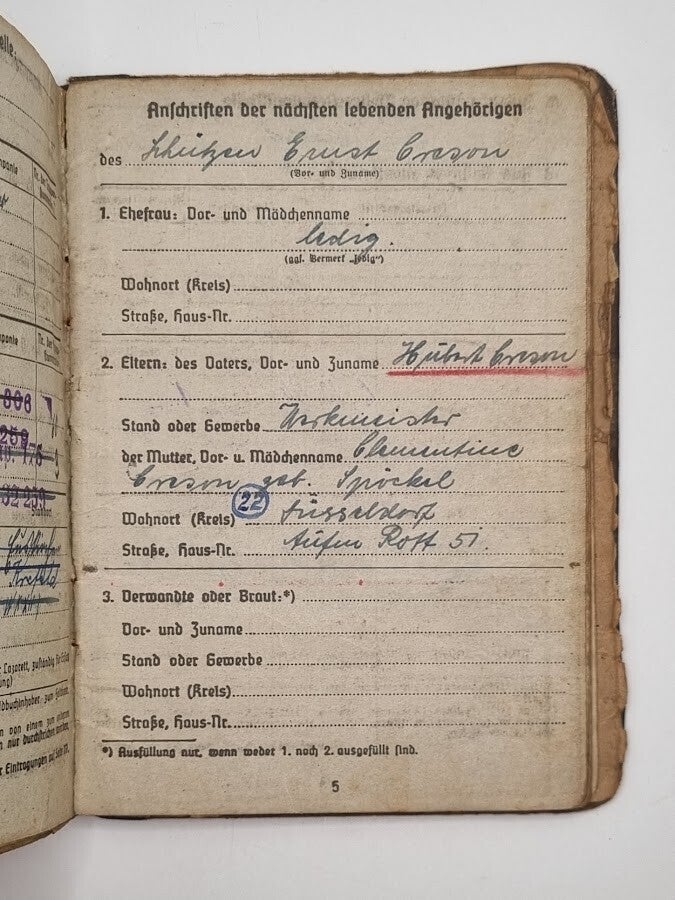 Anschriften der nächsten lebenden Angehörigen
des Schützen Ernst Creson
(Vor- und Zuname)
1. Ehefrau: Vor- und Mädchenname
ledig.
(ggf. Vermerk „ledig“)
Wohnort (Kreis)
Straße, Haus-Nr.
2. Eltern: des Vaters, Vor- und Zuname Hubert Creson
Stand oder Gewerbe Werkmeister
der Mutter, Vor- u. Mädchenname Clementine
Creson geb. Spöckel
Wohnort (Kreis) 22 Düsseldorf
Straße, Haus-Nr. Aufm Rott 51.
3. Verwandte oder Braut:*)
Vor- und Zuname
Stand oder Gewerbe
Wohnort (Kreis)
Straße, Haus-Nr.
*) Ausfüllung nur, wenn weder 1. noch 2. ausgefüllt sind.
5